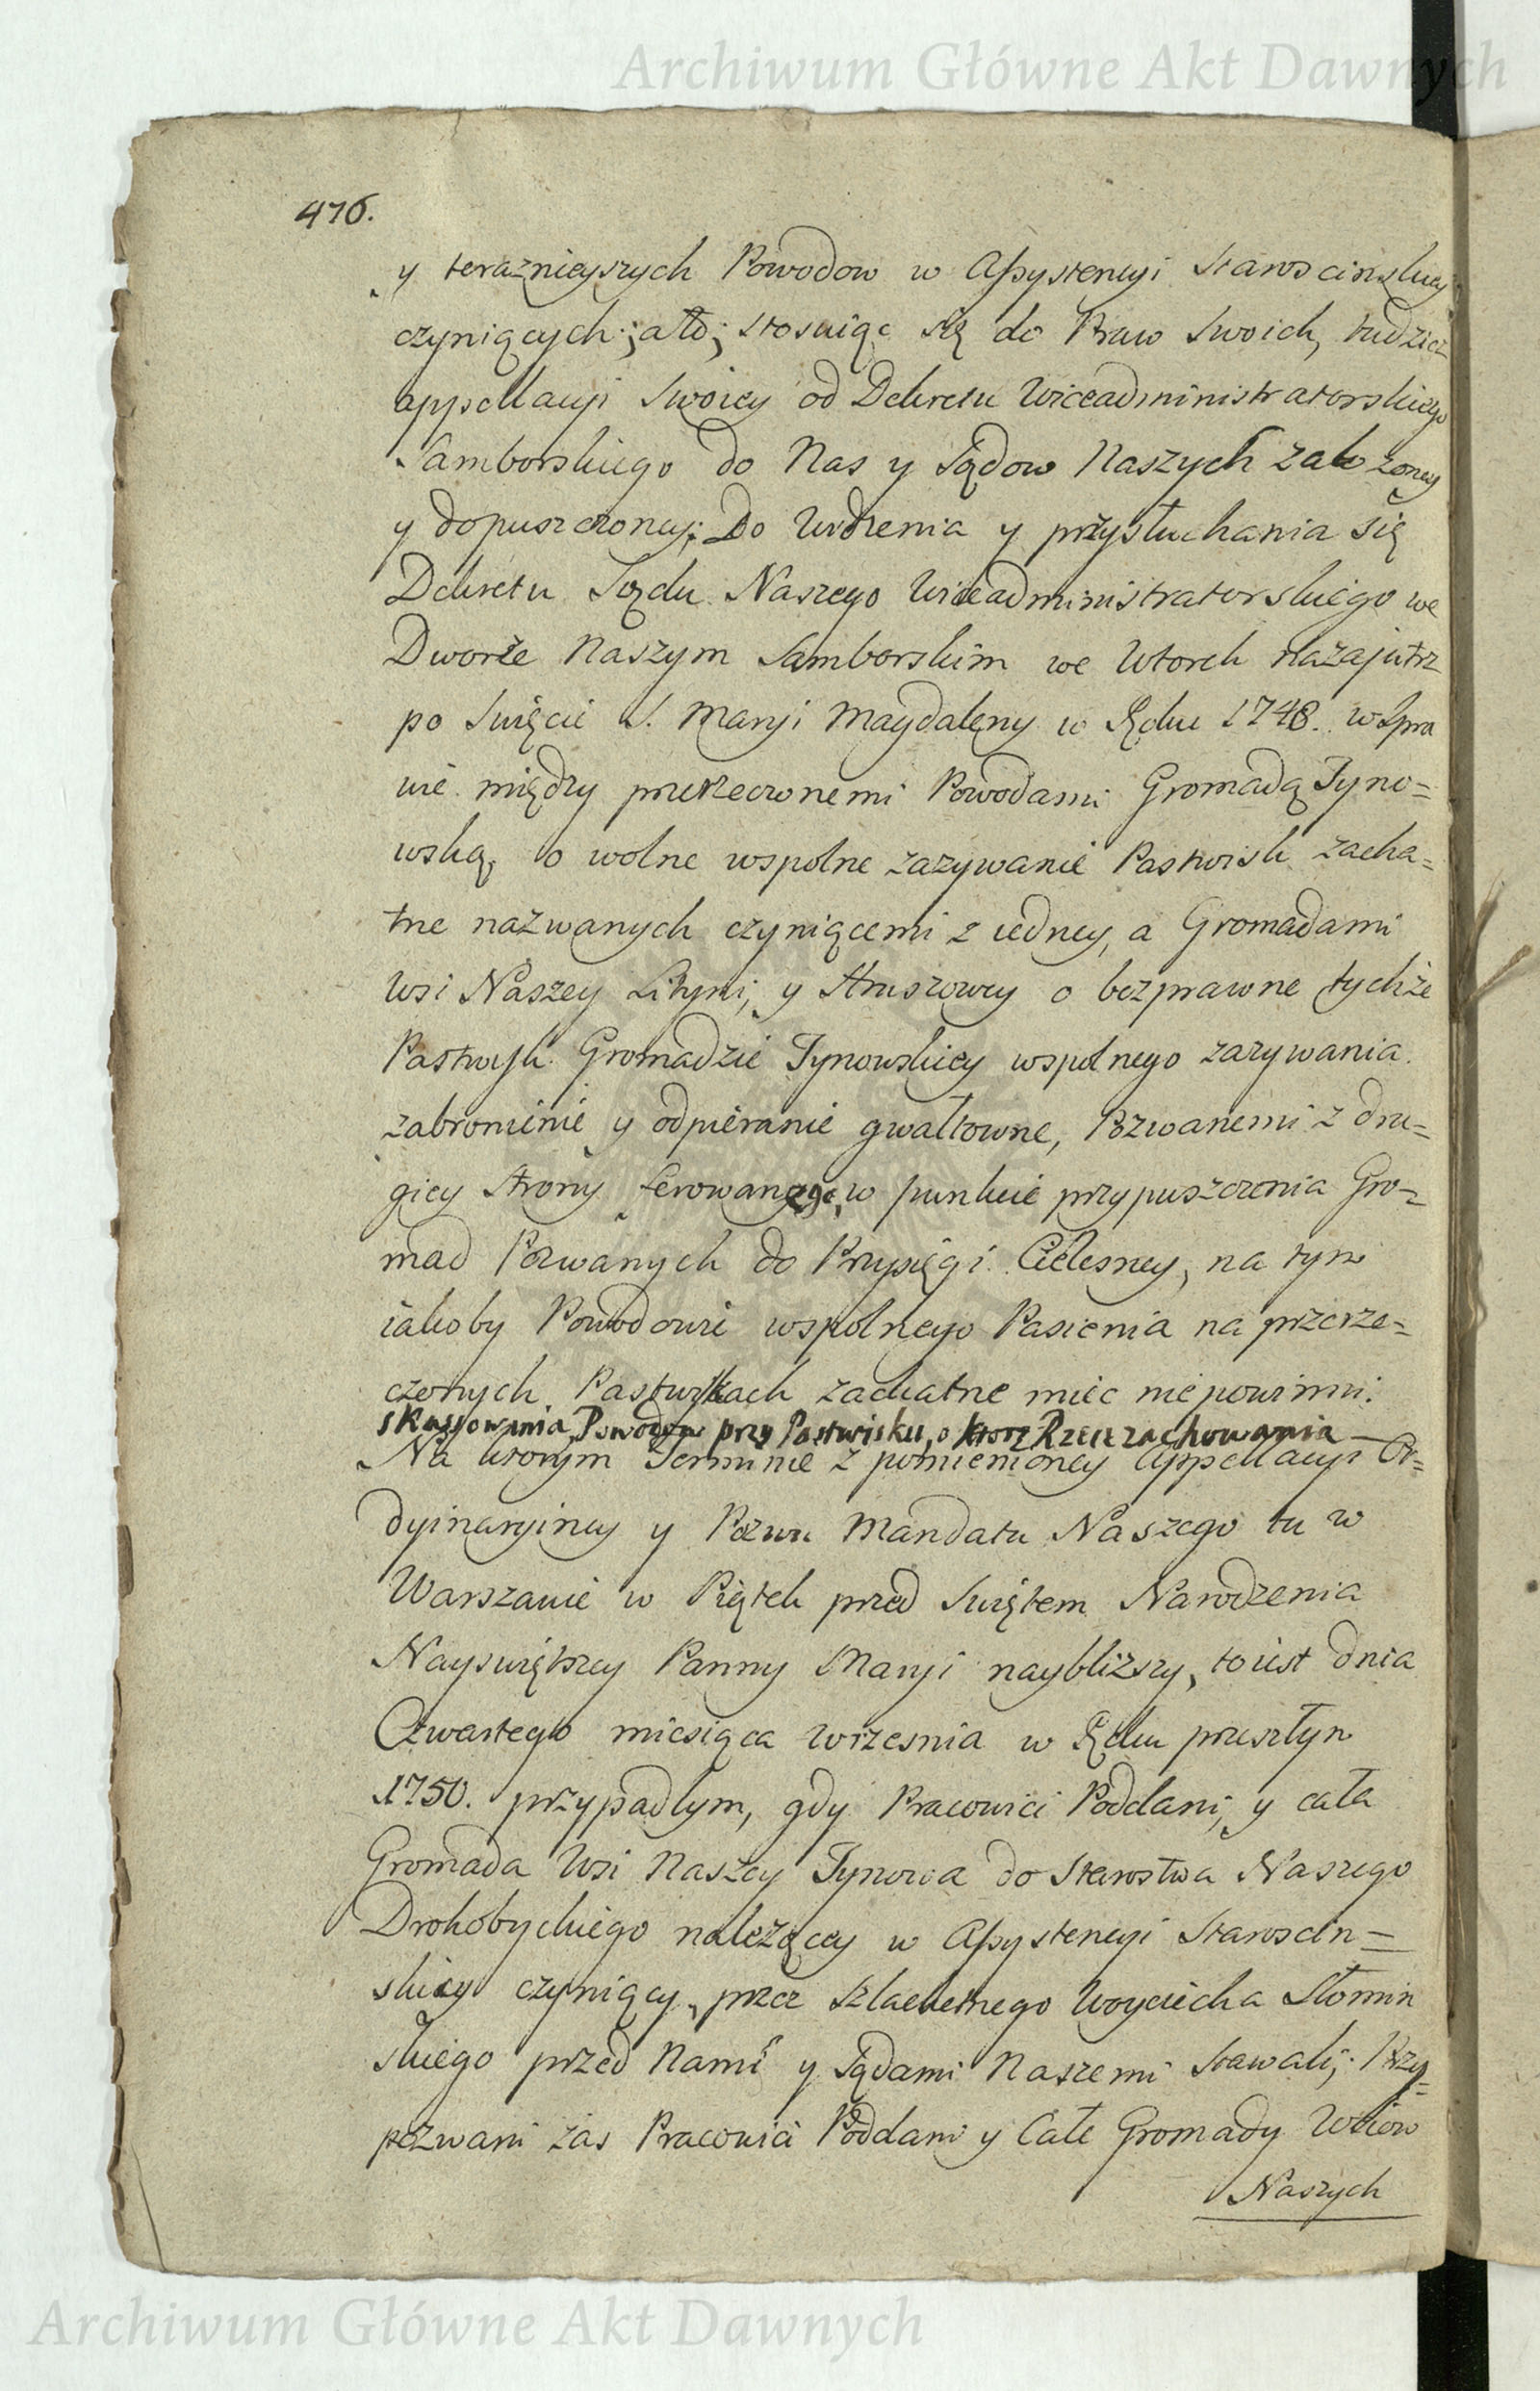 Archiwum Główne Akt Dawnych
476.
y teraznieyszych Powodow w Assystencyi Staroscinskiey
czyniących; ato; stosuiąc się do Praw Swoich, tudziez
appellacyi Swoiey od Dekretu Viceadministratorskiego
Samborskiego do Nas y Sądow Naszych założoney
y dopuszczoney: Do Widzenia y przysłuchania się
Dekretu Sądu Naszego Viceadministratorskiego we
Dworze Naszym Samborskim we Wtorek nazajutrz
po Swięcie S. Maryi Magdaleny w Roku 1748. w Spra
wie między przerzeczonemi Powodami Gromadą Tyno=
wską, o wolne wspolne zazywanie Pastwisk zacha=
tne nazwanych czyniącemi z iedney, a Gromadami
Wsi Naszey Lityni, y Hruszowey o bezprawne tychże
Pastwisk Gromadzie Tynowskiey wspolnego zazywania
zabronienie y odpieranie gwałtowne, Pozwanemi z dru=
giey Strony ferowanego, w punkcie przypuszczenia Gro=
mad Pozwanych do Przysięgi Cielesney, na tym
iakoby Powodowie wspolnego Pasienia na przerze=
czonych Pastwiskach zachatne miec nie powinni.
skassowania, Powodow przy Pastwisku, o ktore Rzecz zachowania
Na ktorym Terminie z pomienioney Appellacyi Or=
dyinaryiney y Pozwu Mandatu Naszego tu w
Warszawie w Piątek przed Swiętem Narodzenia
Nayswiętszey Panny Maryi nayblizszy, to iest dnia
Czwartego miesiąca Wrzesnia w Roku przeszłym
1750. przypadłym, gdy Pracowici Poddani, y cała
Gromada Wsi Naszey Tynowa do Starostwa Naszego
Drohobyckiego należącey w Assystencyi Staroscin=
skiey czyniący, przez Szlachetnego Woyciecha Słomin
skiego przed Nami y Sądami Naszemi stawali; Przy=
pozwani zas Pracowici Poddani y Całe Gromady Wsiow
Naszych
Archiwum Główne Akt Dawnych